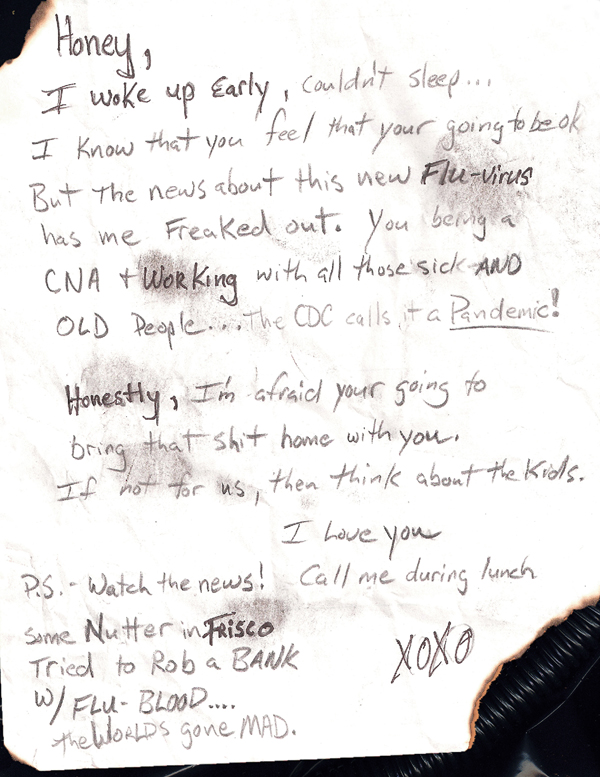 Honey,
I woke up Early, couldn't sleep...
I Know that you feel that your going to be ok
But The news about this new Flu-virus
has me Freaked out. You being a
CNA + Working with all those sick AND
OLD People... The CDC calls it a Pandemic!
Honestly, I'm afraid your going to
bring that shit home with you.
If not for us, then think about the Kids.
I Love you
P.S. - Watch the news! Call me during lunch
some Nutter in Frisco
Tried to Rob a BANK
W/ FLU- BLOOD....
the WORLDS gone MAD.
XOXO